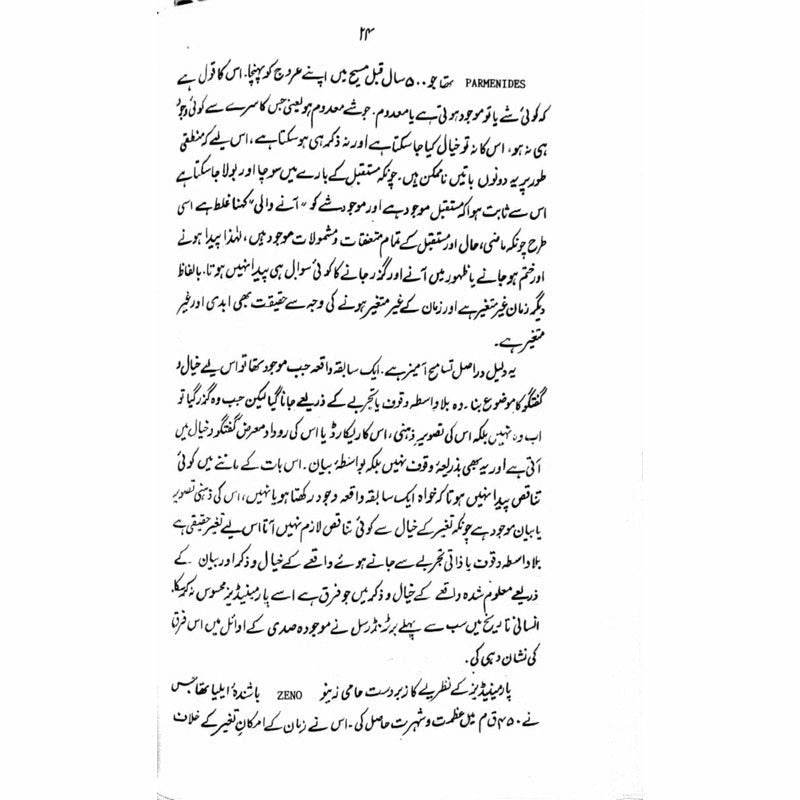 ۲۴
PARMENIDES تھا جو ۵۰۰ سال قبل مسیح میں اپنے عروج کو پہنچا۔ اس کا قول ہے
کہ کوئی شے یا تو موجود ہوتی ہے یا معدوم۔ جو شے معدوم ہو یعنی جس کا سرے سے کوئی وجود
ہی نہ ہو، اس کا نہ تو خیال کیا جا سکتا ہے اور نہ ذکر ہی ہو سکتا ہے، اس لیے کہ منطقی
طور پر یہ دونوں باتیں ناممکن ہیں۔ چونکہ مستقبل کے بارے میں سوچا اور بولا جا سکتا ہے
اس سے ثابت ہوا کہ مستقبل موجود ہے اور موجود شے کو "آنے والی" کہنا غلط ہے اسی
طرح چونکہ ماضی، حال اور مستقبل کے تمام متعلقات و مشمولات موجود ہیں، لہٰذا پیدا ہونے
اور ختم ہو جانے یا ظہور میں آنے اور گذر جانے کا کوئی سوال ہی پیدا نہیں ہوتا۔ بالفاظ
دیگر زمان غیر متغیر ہے اور زمان کے غیر متغیر ہونے کی وجہ سے حقیقت بھی ابدی اور غیر
متغیر ہے۔
یہ دلیل دراصل تسامح آمیز ہے۔ ایک سابقہ واقعہ جب موجود تھا تو اس لیے خیال و
گفتگو کا موضوع بنا۔ وہ بلا واسطہ وقوف یا تجربے کے ذریعے جانا گیا لیکن جب وہ گذر گیا تو
اب وہ نہیں بلکہ اس کی تصویرِ ذہنی، اس کا ریکارڈ یا اس کی روداد معرضِ گفتگو و خیال میں
آتی ہے اور یہ بھی بذریعۂ وقوف نہیں بلکہ بواسطۂ بیان۔ اس بات کے ماننے میں کوئی
تناقص پیدا نہیں ہوتا کہ خواہ ایک سابقہ واقعہ وجود رکھتا ہو یا نہیں، اس کی ذہنی تصویر
یا بیان موجود ہے چونکہ تغیر کے خیال سے کوئی تناقص لازم نہیں آتا اس لیے تغیر حقیقی ہے
بلا واسطہ وقوف یا ذاتی تجربے سے جانے ہوئے واقعے کے خیال و ذکر اور بیان کے
ذریعے معلوم شدہ واقعے کے خیال و ذکر میں جو فرق ہے اسے پارمینیڈیز محسوس نہ کر سکا۔
انسانی تاریخ میں سب سے پہلے برٹرینڈ رسل نے موجودہ صدی کے اوائل میں اس فرق
کی نشان دہی کی۔
پارمینیڈیز کے نظریے کا زبردست حامی زینو ZENO باشندۂ ایلیا تھا جس
نے ۴۵۰ ق م میں عظمت و شہرت حاصل کی۔ اس نے زمان کے امکانِ تغیر کے خلاف